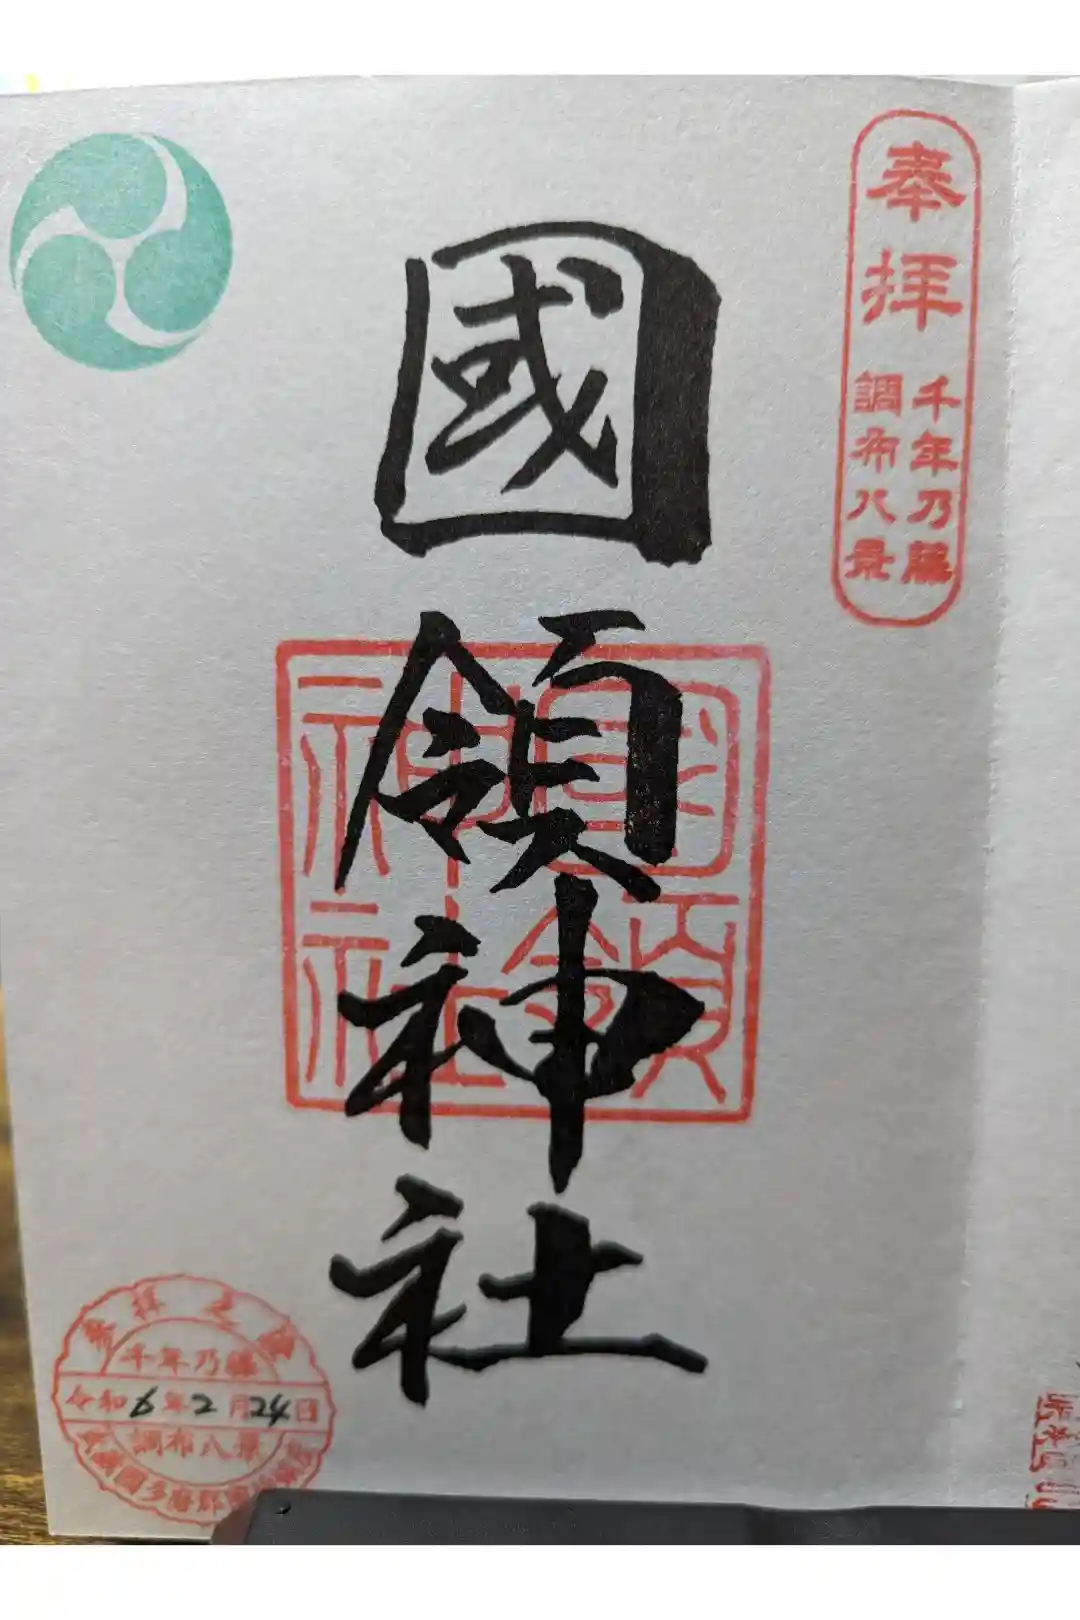 奉拝
千年乃藤
調布八景
國領神社
國領
神社
参拝之證
千年乃藤
令和6年2月24日
調布八景